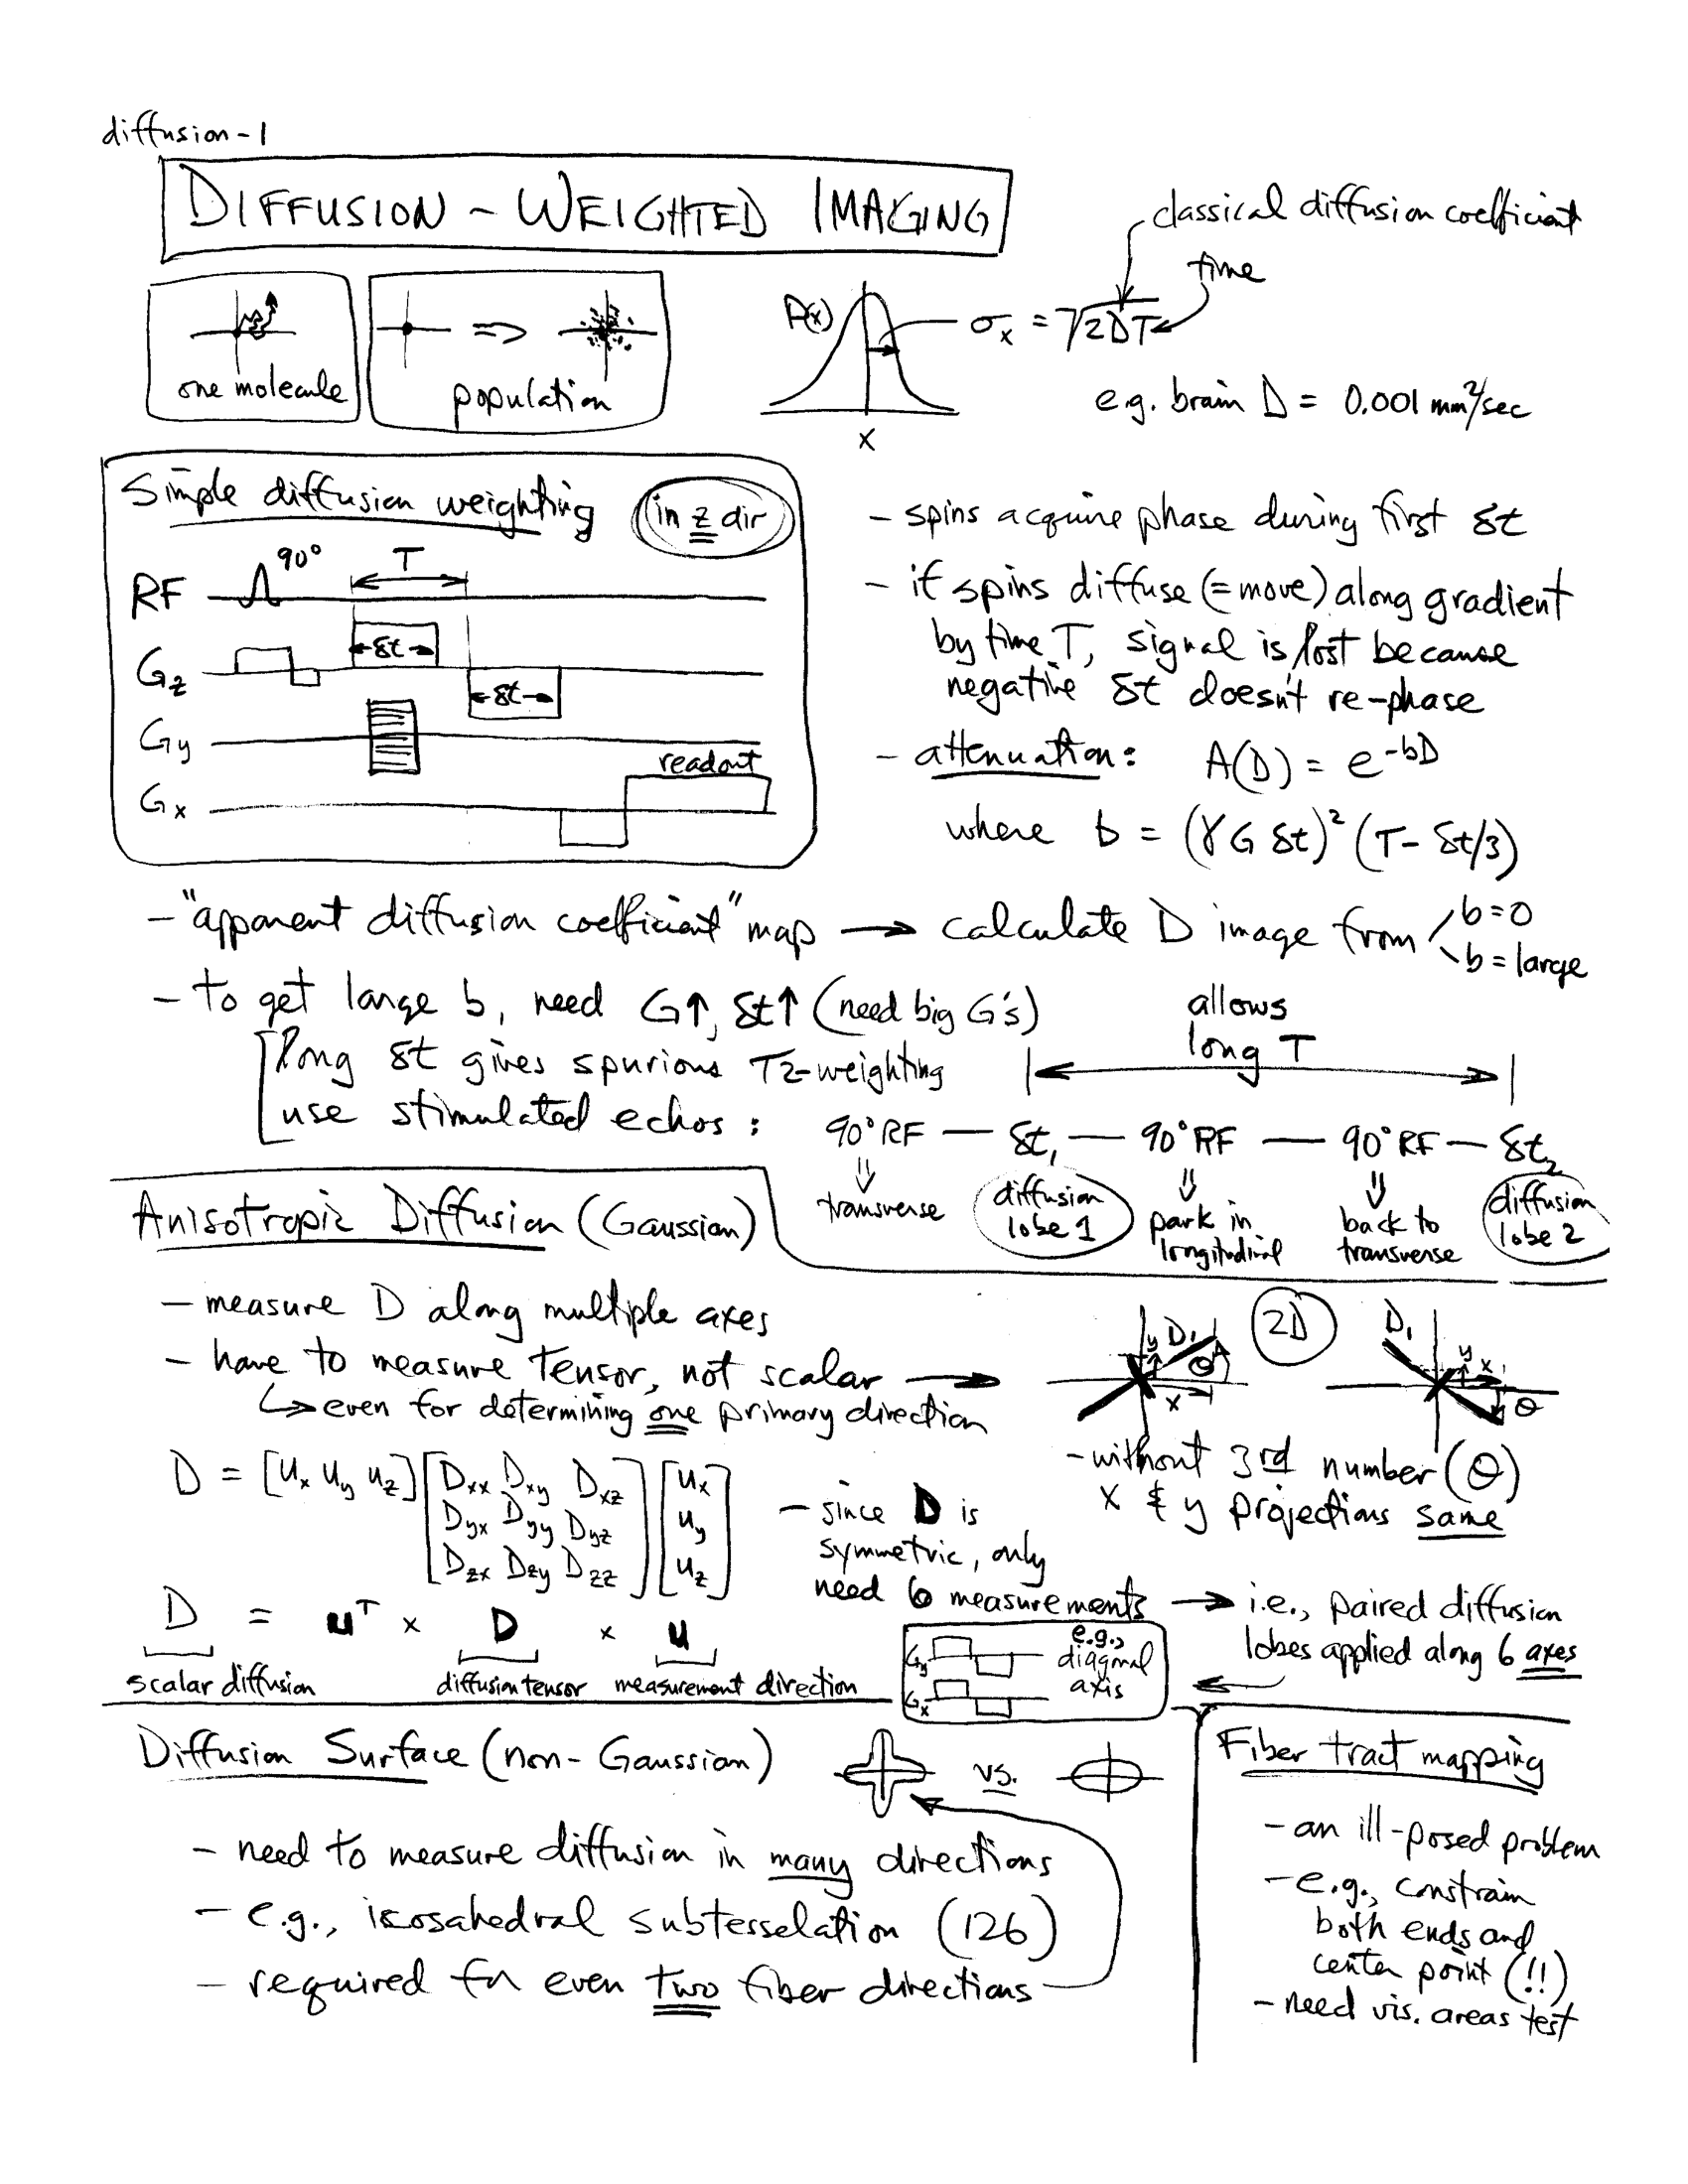 diffusion-1
DIFFUSION - WEIGHTED IMAGING
classical diffusion coefficient
time
one molecule
population
P(x)
x
σx = √2DT
e.g. brain D = 0.001 mm²/sec
Simple diffusion weighting
in z dir
RF
90°
T
Gz
←δt→
←δt→
Gy
Gx
readout
- spins acquire phase during first δt
- if spins diffuse (=move) along gradient
by time T, signal is lost because
negative δt doesn't re-phase
- attenuation: A(D) = e^-bD
where b = (γ G δt)² (T- δt/3)
- "apparent diffusion coefficient" map → calculate D image from
b=0
b=large
- to get large b, need G↑, δt↑ (need big G's)
long δt gives spurious T2-weighting
use stimulated echos:
allows
long T
90°RF — δt₁ — 90°RF — 90°RF — δt₂
⇓ transverse
diffusion
lobe 1
⇓ park in
longitudinal
⇓ back to
transverse
diffusion
lobe 2
Anisotropic Diffusion (Gaussian)
- measure D along multiple axes
- have to measure tensor, not scalar →
↳ even for determining one primary direction
2D
y D₁ θ
x
D₁ y x
θ
- without 3rd number (θ)
x & y projections same
D = [ux uy uz] [Dxx Dxy Dxz] [ux]
[Dyx Dyy Dyz] [uy]
[Dzx Dzy Dzz] [uz]
- since D is
symmetric, only
need 6 measurements → i.e., paired diffusion
lobes applied along 6 axes
D = uᵀ × D × u
scalar diffusion
diffusion tensor
measurement direction
Gy
Gx
e.g.,
diagonal
axis
Diffusion Surface (non-Gaussian)
vs.
- need to measure diffusion in many directions
- e.g., icosahedral subtesselation (126)
- required for even two fiber directions
Fiber tract mapping
- an ill-posed problem
- e.g., constrain
both ends and
center point (!!)
- need vis. areas test